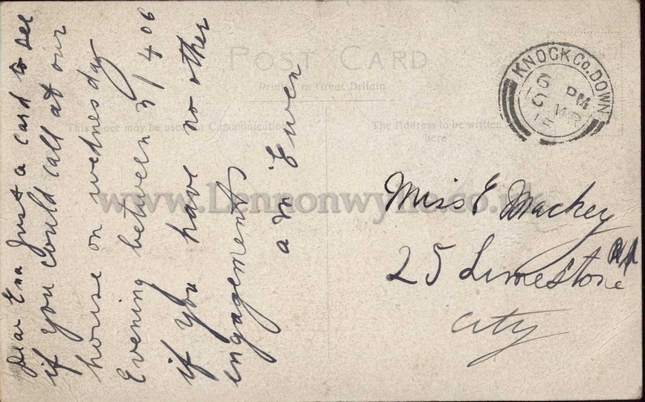 Dear Ena Just a card to see
if you could call at our
house on wednesday
Evening between 3/4 0 6
if you have no other
engagements
a m c Ewen
POST CARD
Printed in Great Britain
This space may be used for Communication
The Address to be written
here
KNOCK Co. DOWN
PM
Miss E Mackey
25 Limestone Rd
City